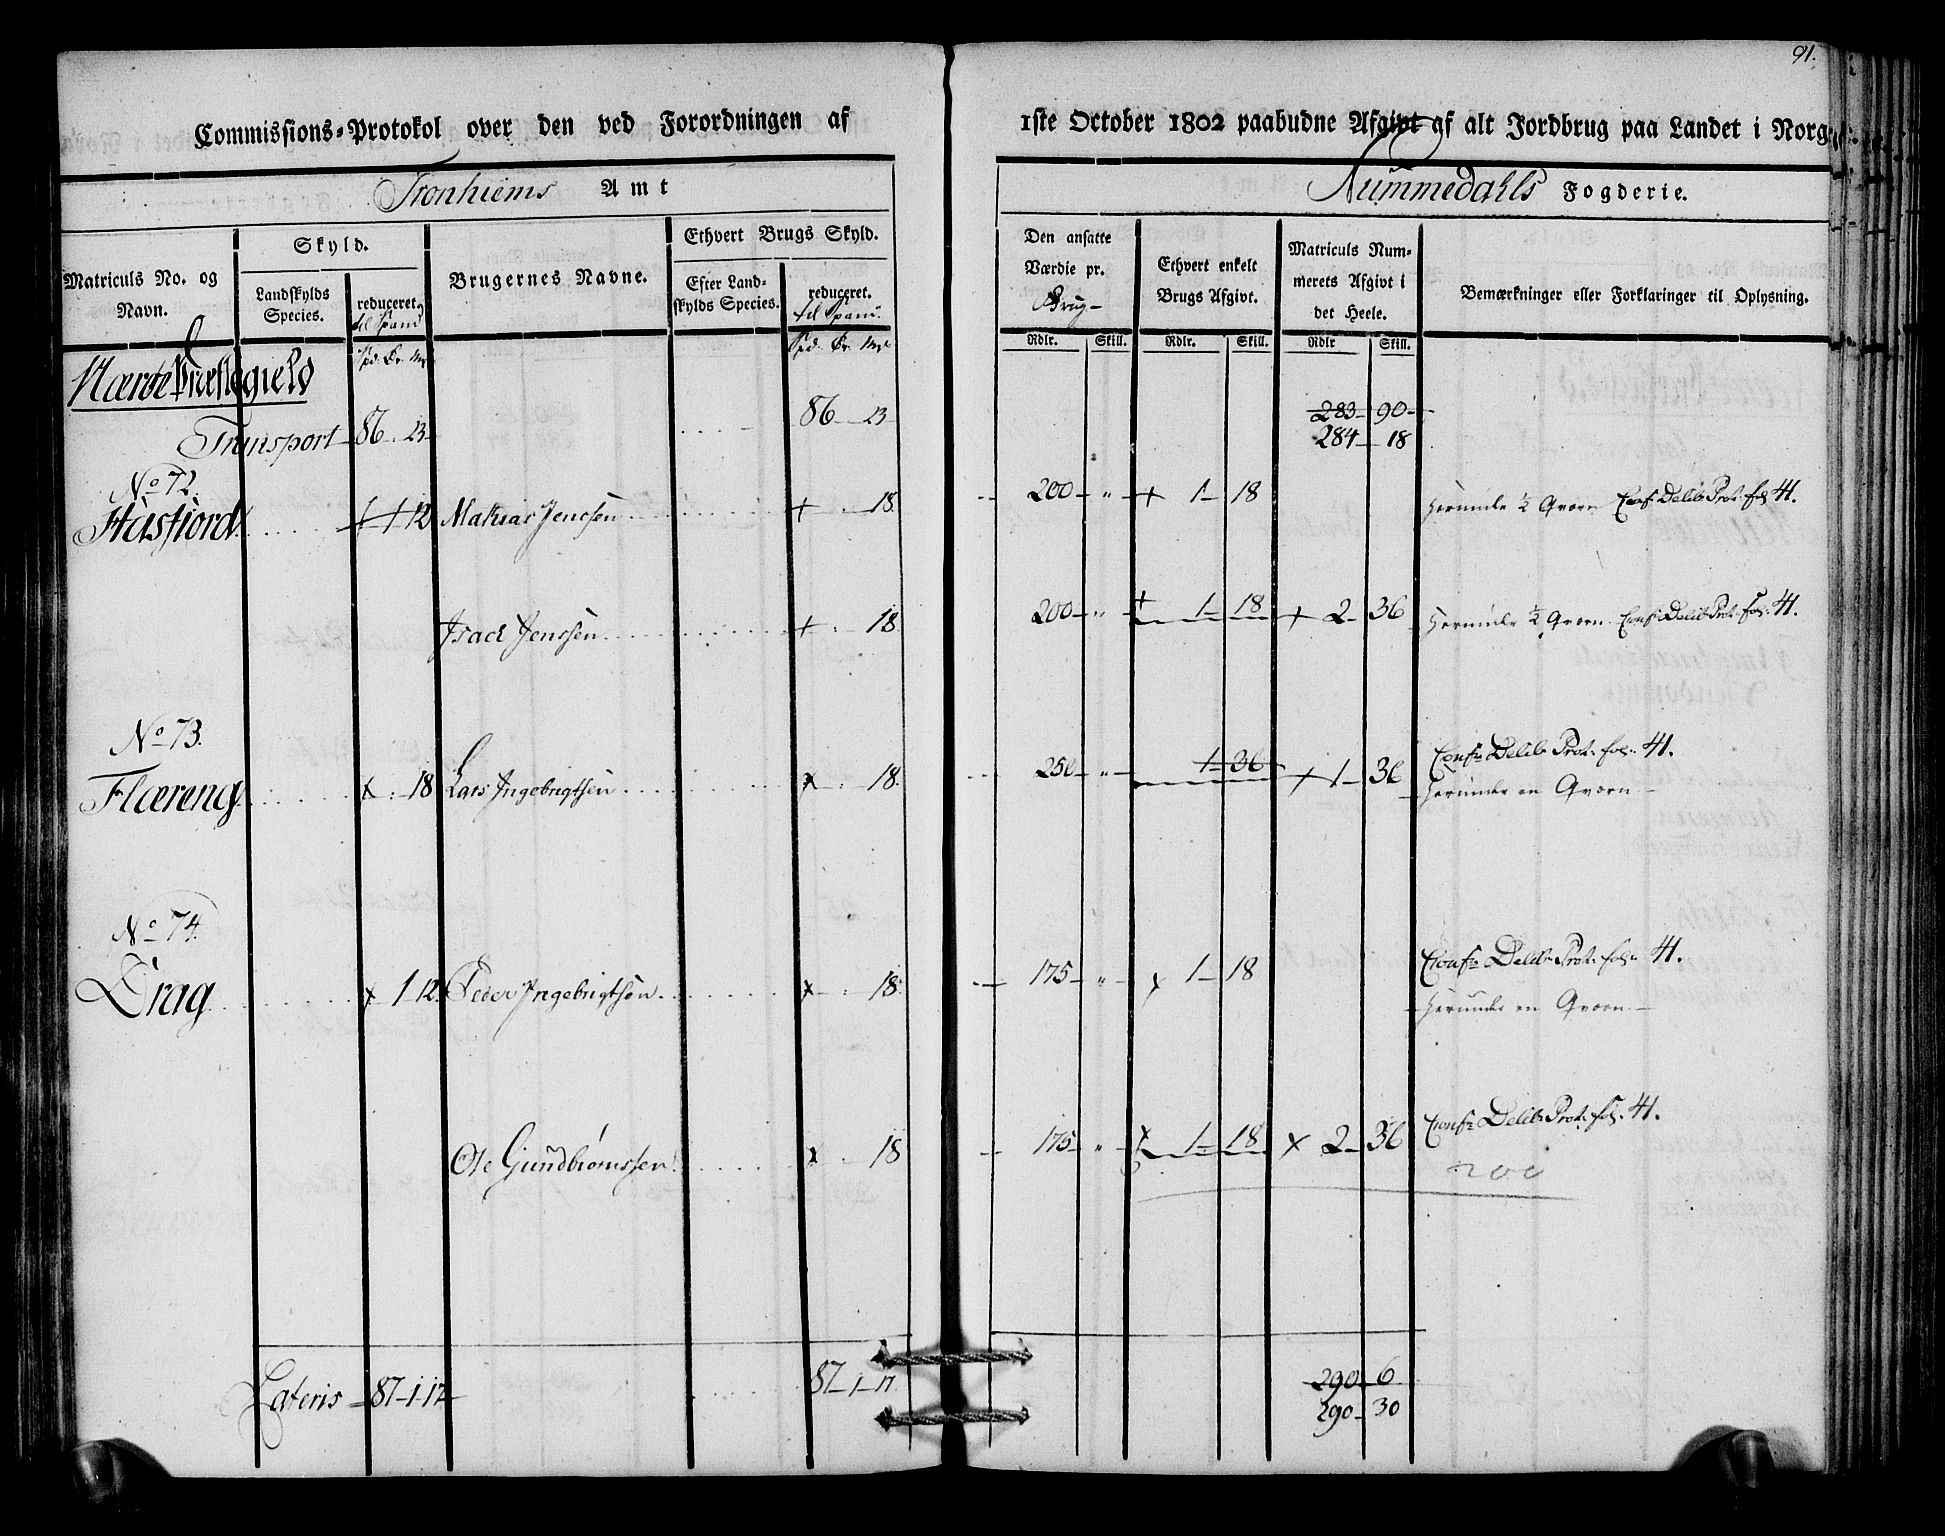 91.
Commissions-Protokol over den ved Forordningen af 1ste October 1802 paabudne Afgivt af alt Jordbrug paa Landet i Norg
Tronhiems Amt
Nummedahls Fogderie.
Matriculs No. og Navn.
Skyld.
Landskylds Species.
reduceret til Spand
Brugernes Navne.
Ethvert Brugs Skyld.
Efter Landskylds Species.
reduceret. til Spand.
Den ansatte Værdie pr. Brug-
Ethvert enkelt Brugs Afgivt.
Matriculs Nummerets Afgivt i det Heele.
Bemærkninger eller Forklaringer til Oplysning.
Rdlr. Skill. Rdlr. Skill. Rdlr Skill.
Nærøe Præstegield
Transport 86 . 23 86 23 283 90
284 18
No 72.
Husfiord 1 12 Mathias Jenssen 18 200 " 1 18 herunder ½ Qværn Conf: Delib: Prot: fol: 41.
Isach Jenssen 18. 200 " 1 18 2 36 herunder ½ Qværn Conf: Delib: Prot: fol: 41.
No 73.
Flæreng 18 Lars Ingebrigtsen 18. 250 " 1 36 1 36 Conf: Delib: Prot: fol: 41.
herunder en Qværn
No 74.
Drag 1 12 Peder Ingebrigtsen 18 175 " 1 18 Conf: Delib: Prot: fol: 41.
herunder en Qværn
Ole Gundbiørnssen 18 175 " 1 18 2 36 Conf: Delib: Prot: fol: 41.
200
Lateris 87 1 17 87 1 17 290 6
290 30